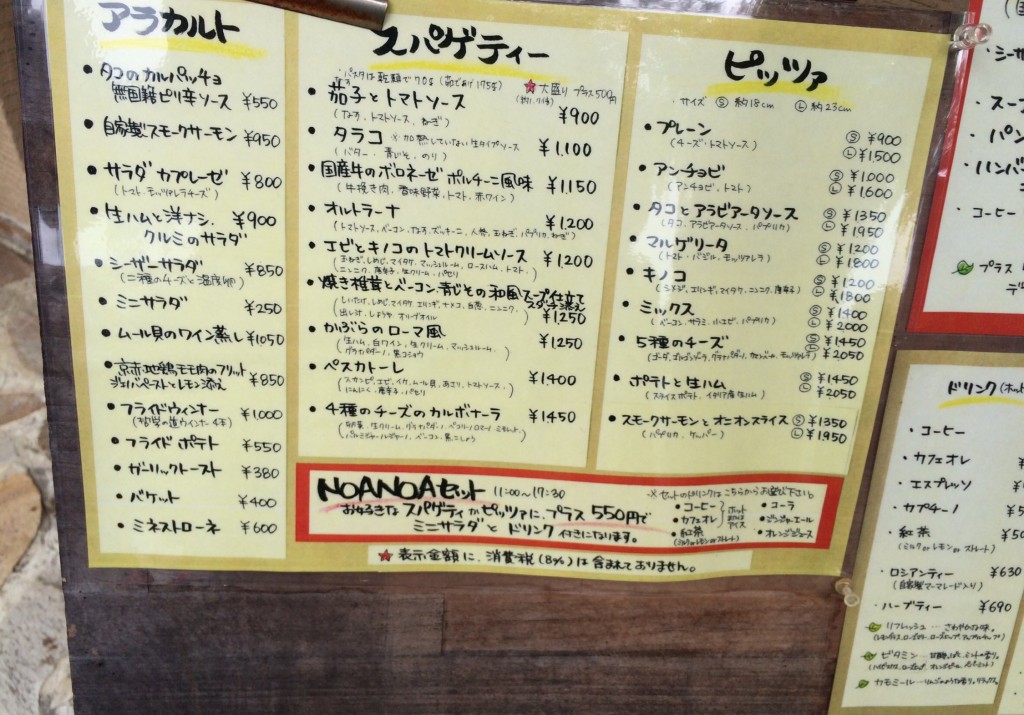 アラカルト
• タコのカルパッチョ
無国籍ピリ辛ソース ¥550
• 自家製スモークサーモン ¥950
• サラダ カプレーゼ ¥800
(トマト、モッツァレラチーズ)
• 生ハムと洋ナシ、 ¥900
クルミのサラダ
• シーザーサラダ ¥850
(二種のチーズと温度卵)
• ミニサラダ ¥250
• ムール貝のワイン蒸し ¥1050
• 京赤地鶏モモ肉のフリット
ジェノバペーストとレモン添え ¥850
• フライドウィンナー ¥1,000
(哲学の道ウインナー 4本)
• フライド ポテト ¥550
• ガーリックトースト ¥380
• バケット ¥400
• ミネストローネ ¥600
スパゲティー
・パスタは乾麺で70g (茹であげ175g)
★大盛り プラス500円
• 茄子とトマトソース ¥900
なす
(なす、トマトソース、ねぎ)
• タラコ ※加熱していない生タイプソース ¥1,100
(バター、青じそ、のり)
• 国産牛のボロネーゼ ポルチーニ風味 ¥1,150
(牛挽き肉、香味野菜、トマト、赤ワイン)
• オルトラーナ ¥1,200
(トマトソース、ベーコン、なす、ズッキーニ、人参、玉ねぎ、パプリカ、ねぎ)
• エビとキノコのトマトクリームソース ¥1,200
(玉ねぎ、しめじ、マイタケ、マッシュルーム、ロースハム、トマト、
ニンニク、唐辛子、生クリーム、パセリ)
• 焼き椎茸とベーコン、青じその和風スープ仕立て
スダチ添え
(しいたけ、しめじ、マイタケ、エリンギ、ナメコ、白ネギ、ニンニク、
出し汁、しょうゆ、オリーブオイル) ¥1,250
• かぶらのローマ風 ¥1250
(生ハム、白ワイン、生クリーム、マッシュルーム、
グラナパダーノ、黒コショウ)
• ペスカトーレ ¥1400
(スカンピ、エビ、イカ、ムール貝、あさり、トマトソース、
にんにく、唐辛子、パセリ)
• 4種のチーズのカルボナーラ ¥1450
(卵黄、生クリーム、グラナパダーノ、ペコリーノロマーノ、
パルミジャーノレジャーノ、ベーコン、黒こしょう)
ピッツァ
・サイズ Ⓢ 約18cm Ⓛ 約23cm
• プレーン Ⓢ ¥900
(チーズ・トマトソース) Ⓛ ¥1500
• アンチョビ Ⓢ ¥1,000
(アンチョビ、トマト) Ⓛ ¥1,600
• タコとアラビアータソース Ⓢ ¥1350
(タコ、アラビアータソース、パプリカ) Ⓛ ¥1950
• マルゲリータ Ⓢ ¥1200
(トマト・バジル、モッツァレラ) Ⓛ ¥1800
• キノコ Ⓢ ¥1200
(シメジ、エリンギ、マイタケ、ニンニク、唐辛子) Ⓛ ¥1,800
• ミックス Ⓢ ¥1400
(ベーコン、サラミ、小エビ、パプリカ) Ⓛ ¥2000
• 5種のチーズ Ⓢ ¥1450
Ⓛ ¥2050
• ポテトと生ハム Ⓢ ¥1450
(スライスポテト、イタリア産生ハム) Ⓛ ¥2050
• スモークサーモンとオニオンスライス Ⓢ ¥1350
(パプリカ、ケッパー) Ⓛ ¥1,950
NOANOAセット 11:00〜17:30
お好きな スパゲティ か ピッツァに、プラス 550円で
ミニサラダと ドリンク 付きになります。
※セットのドリンクは こちらからお選び下さい。
• コーヒー
• カフェオレ
• 紅茶
(ミルクorレモンorストレート)
ホット
または
アイス
• コーラ
• ジンジャーエール
• オレンジジュース
★ 表示金額に、消費税(8%)は含まれておりません。
・シーザー
・スープ
・パン
・ハンバ
・コーヒー
プラス
ドリンク (ホット
・コーヒー
・カフェオレ
・エスプレッソ
・カプチーノ
・紅茶
(ミルクorレモンorストレート)
・ロシアンティー ¥630
(自家製マーマレード入り)
・ハーブティー ¥690
リフレッシュ … さわやかな味。
ビタミン …
カモミール … りんごのような香り。リラックス。